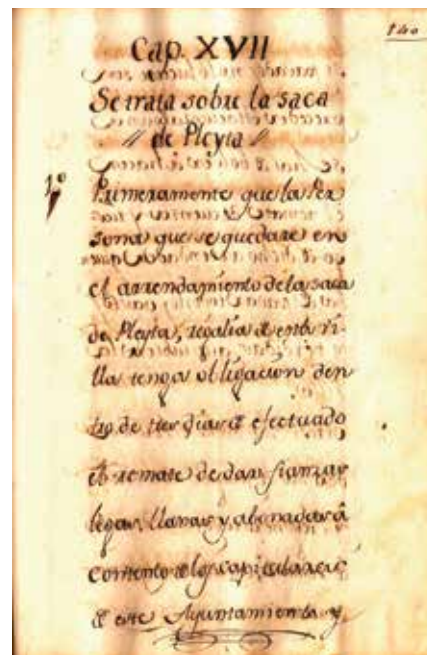 140
Cap. XVII
Se trata sobre la saca
// de Pleyta //
1º
Primeramente que la Per
sona que se quedare en
el arrendamiento de la saca
de Pleyta, regalia de esta vi-
lla tenga obligacion den
tro de tres dias de efectuado
el remate de dar fianzas
legas, llanas y abonadas á
contento de los capitulares
de este Ayuntamiento y